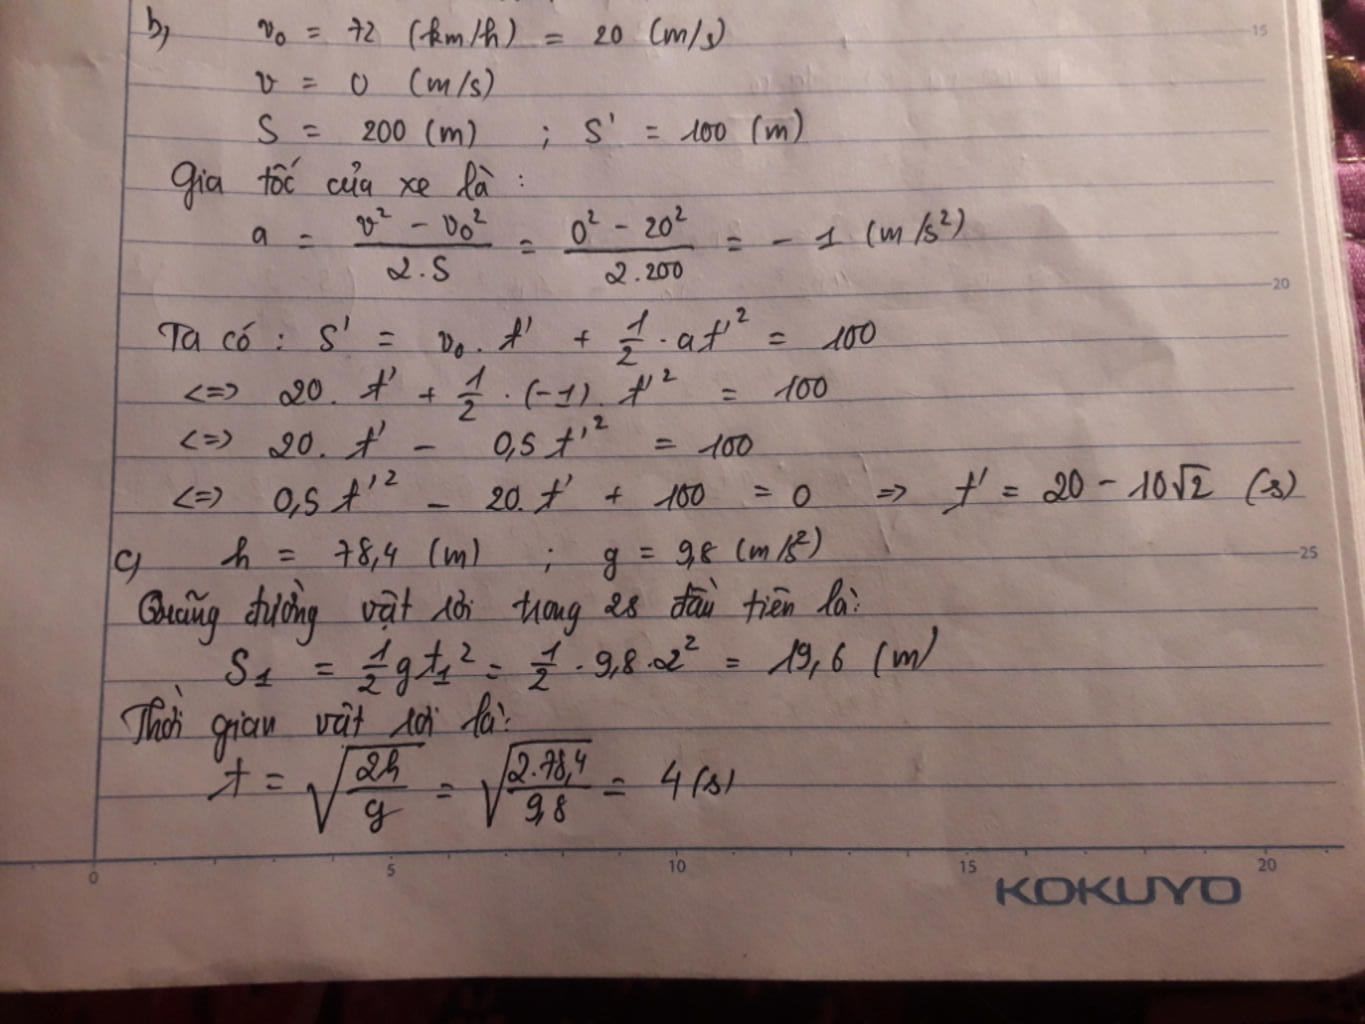 b, v₀ = 72 (km/h) = 20 (m/s)
15
v = 0 (m/s)
S = 200 (m) ; S' = 100 (m)
Gia tốc của xe là :
a = (v² - v₀²)/(2.S) = (0² - 20²)/(2.200) = - 1 (m/s²)
20
Ta có : S' = v₀. t' + 1/2 . at'² = 100
<=> 20. t' + 1/2 . (-1). t'² = 100
<=> 20. t' - 0,5 t'² = 100
<=> 0,5 t'² - 20. t' + 100 = 0 => t' = 20 - 10√2 (s)
c, h = 78,4 (m) ; g = 9,8 (m/s²)
25
Quãng đường vật rơi trong 2s đầu tiên là:
S₁ = 1/2 g t₁² = 1/2 . 9,8 . 2² = 19,6 (m)
Thời gian vật rơi là:
t = √(2h/g) = √(2.78,4/9,8) = 4 (s)
0 5 10 15 20
KOKUYO